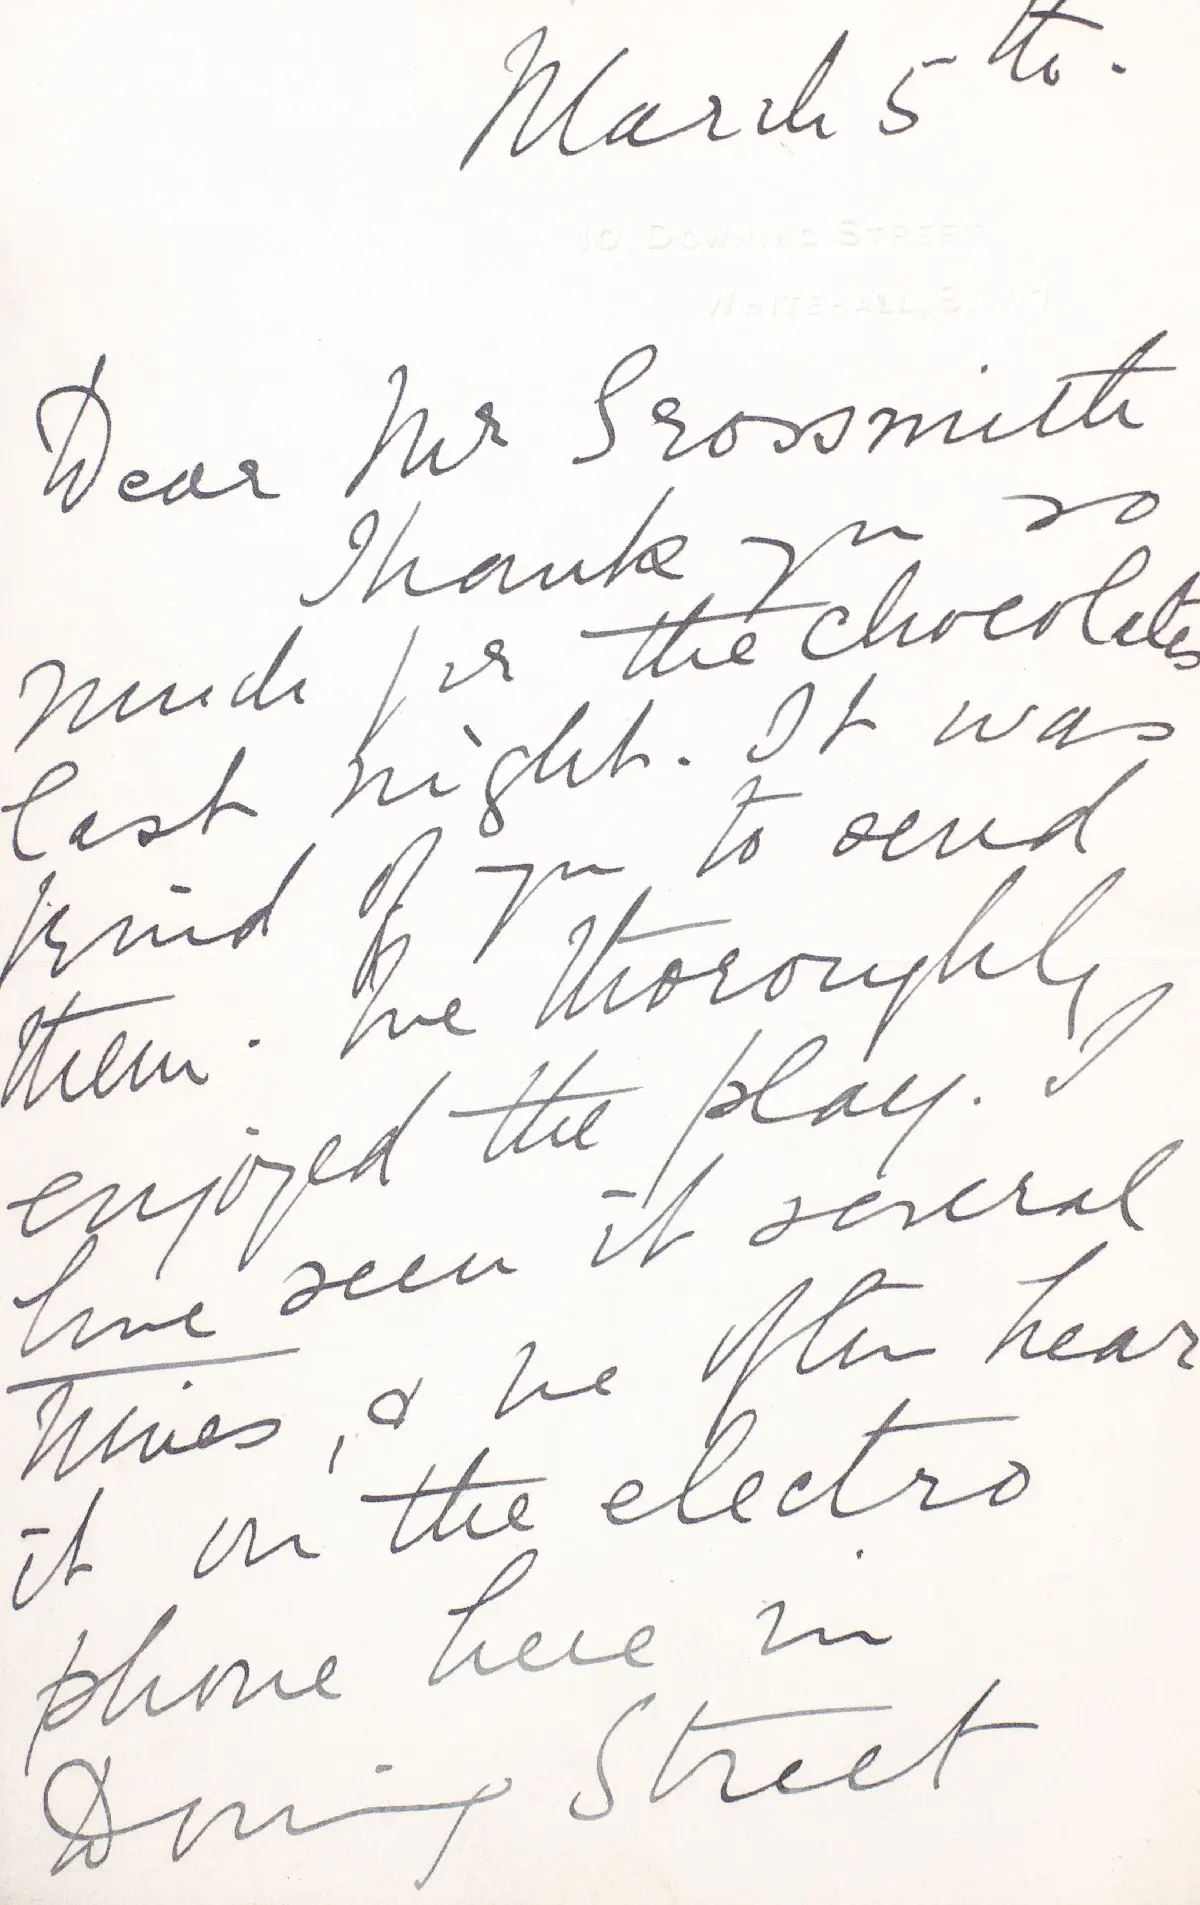 March 5th.
10, DOWNING STREET,
WHITEHALL, S.W.1.
Dear Mr Grossmith
Thank you so
much for the chocolates
last night. It was
kind of you to send
them. We thoroughly
enjoyed the play. I
have seen it several
times, & we often hear
it on the electro
phone here in
Downing Street